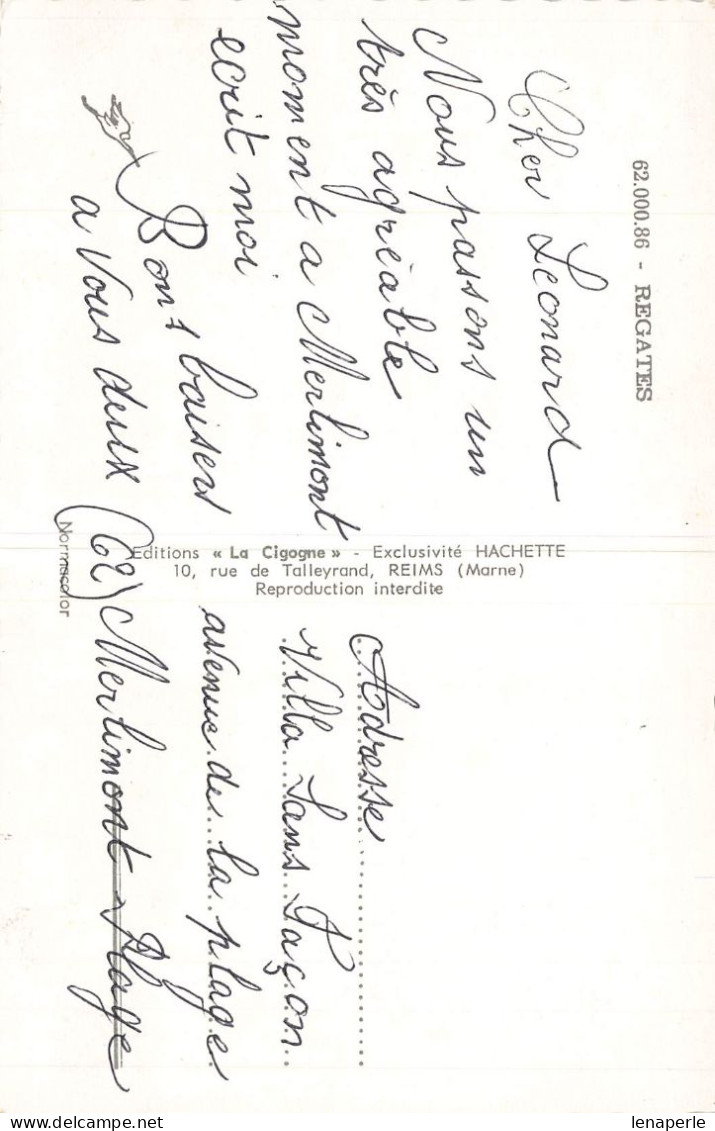 62.000.86 - REGATES
Cher Leonard
Nous passons un
très agréable
moment a Merlimont
ecrit moi
Bons baisers
a Vous deux
Editions « La Cigogne » - Exclusivité HACHETTE
10, rue de Talleyrand, REIMS (Marne)
Reproduction interdite
Normacolor
Adresse
Villa Sans Façon
avenue de la plage
(62) Merlimont Plage
lenaperle